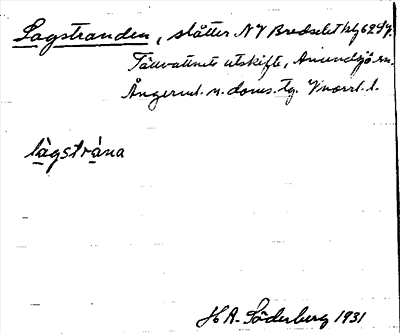 Lagstranden, slåtter. NV Bredselet kbl 62 4y.
Tåsvattnets utskifte, Anundsjö sn.
Ångerml. n. doms. tg. Vnorrl. l.
lågstråna
H A. Söderberg 1931